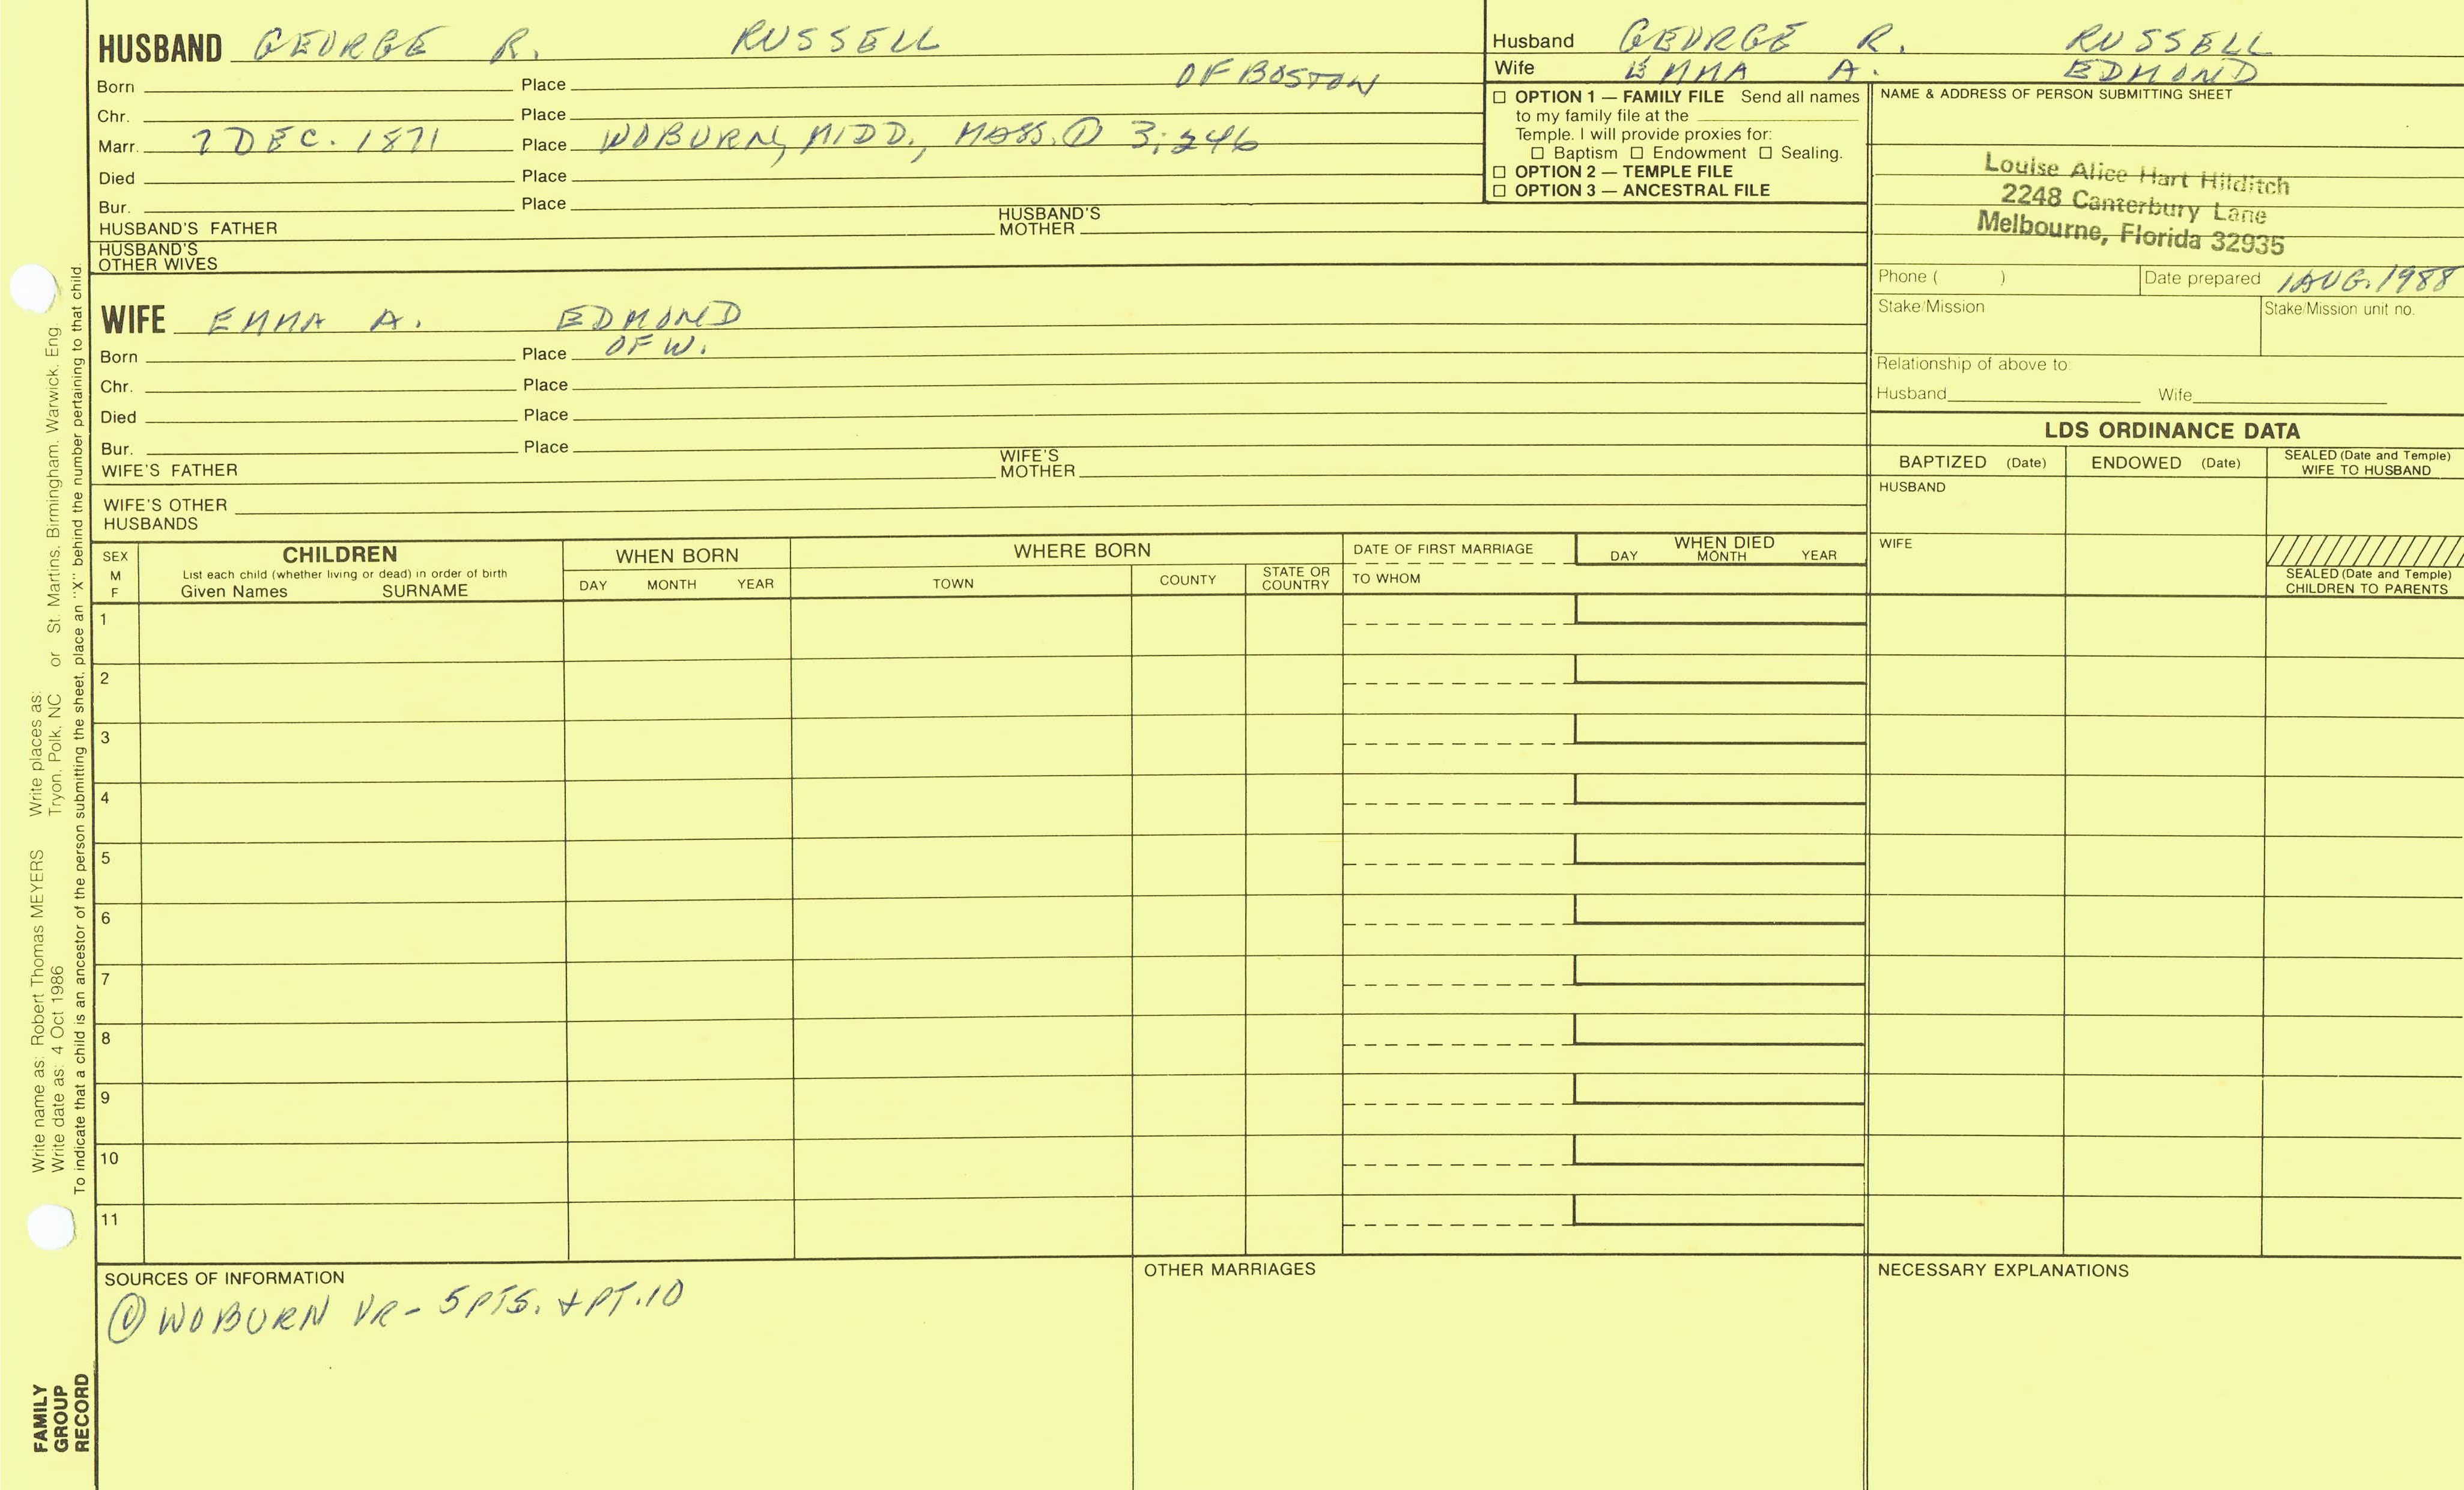 HUSBAND GEORGE R. RUSSELL
Born Place OF BOSTON
Chr. Place
Marr. 7 DEC. 1871 Place WOBURN, MIDD., MASS. ① 3:246
Died Place
Bur. Place
HUSBAND'S FATHER HUSBAND'S MOTHER
HUSBAND'S OTHER WIVES
WIFE EMMA A. EDMOND
Born Place OF W.
Chr. Place
Died Place
Bur. Place
WIFE'S FATHER WIFE'S MOTHER
WIFE'S OTHER HUSBANDS
Husband GEORGE R. RUSSELL
Wife EMMA A. EDMOND
☐ OPTION 1 — FAMILY FILE Send all names
to my family file at the
Temple. I will provide proxies for:
☐ Baptism ☐ Endowment ☐ Sealing.
☐ OPTION 2 — TEMPLE FILE
☐ OPTION 3 — ANCESTRAL FILE
NAME & ADDRESS OF PERSON SUBMITTING SHEET
Louise Alice Hart Hilditch
2248 Canterbury Lane
Melbourne, Florida 32935
Phone ( ) Date prepared 1 AUG. 1988
Stake/Mission Stake/Mission unit no.
Relationship of above to:
Husband Wife
LDS ORDINANCE DATA
BAPTIZED (Date) ENDOWED (Date) SEALED (Date and Temple) WIFE TO HUSBAND
HUSBAND
WIFE
SEALED (Date and Temple)
CHILDREN TO PARENTS
SEX M F
CHILDREN
List each child (whether living or dead) in order of birth
Given Names SURNAME
WHEN BORN
DAY MONTH YEAR
WHERE BORN
TOWN COUNTY STATE OR COUNTRY
DATE OF FIRST MARRIAGE
TO WHOM
WHEN DIED
DAY MONTH YEAR
1
2
3
4
5
6
7
8
9
10
11
SOURCES OF INFORMATION
① WOBURN VR - 5 PTS. + PT. 10
OTHER MARRIAGES
NECESSARY EXPLANATIONS
Write name as: Robert Thomas MEYERS Write places as:
Write date as: 4 Oct 1986 Tryon, Polk, NC or St. Martins, Birmingham, Warwick, Eng
To indicate that a child is an ancestor of the person submitting the sheet, place an "X" behind the number pertaining to that child.
FAMILY
GROUP
RECORD